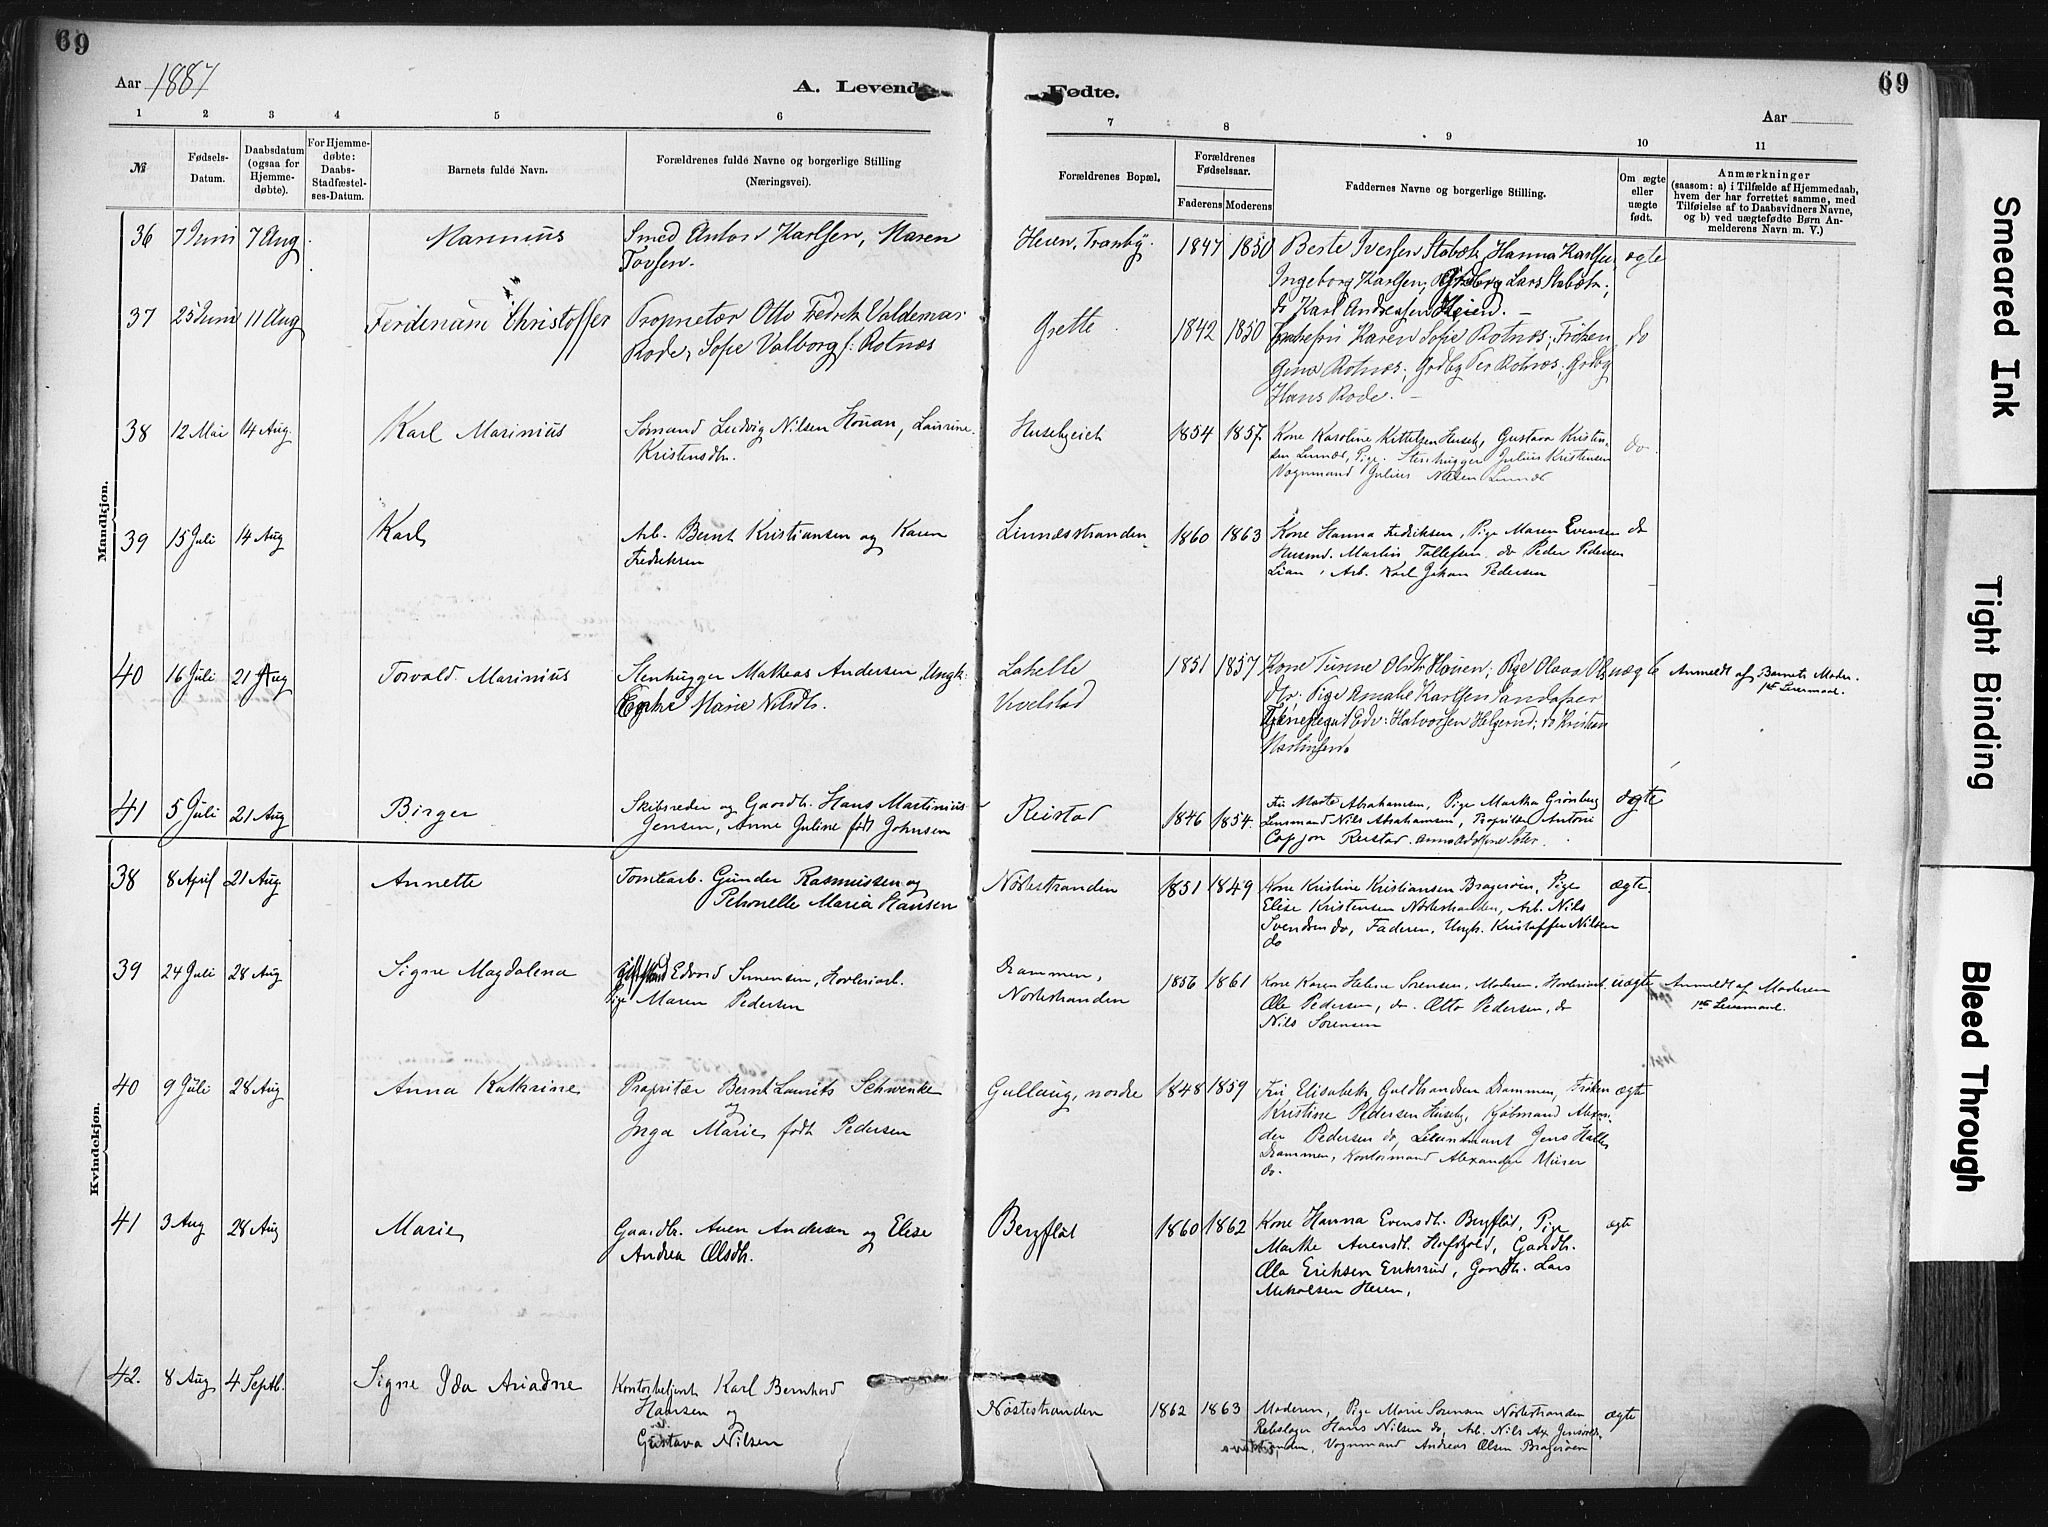 69
Aar 1887
A. Levende
Fødte.
69
Aar
1 2 3 4 5 6 7 8 9 10 11
№
Fødsels-Datum.
Daabsdatum (ogsaa for Hjemme-døbte).
For Hjemme-døbte: Daabs-Stadfæstel-ses-Datum.
Barnets fulde Navn.
Forældrenes fulde Navne og borgerlige Stilling (Næringsvei).
Forældrenes Bopæl.
Forældrenes Fødselsaar.
Faderens Moderens
Faddernes Navne og borgerlige Stilling.
Om ægte eller uægte født.
Anmærkninger
(saasom: a) i Tilfælde af Hjemmedaab, hvem der har forrettet samme, med Tilføielse af to Daabsvidners Navne, og b) ved uægtefødte Børn An-melderens Navn m. V.)
Mandkjøn.
36 7 Juni 7 Aug. Marinius
Smed Anton Karlsen, Maren
Tovsen.
Heien, Tranby. 1847 1850
Berte Iversen Stabæk, Hanna Karlsen,
Ingeborg Karlsen, Lars Stabæk,
do Karl Andreasen Heien. ægte
37 25 Juni 11 Aug Ferdinand Christoffer
Proprietær Otto Fredrik Valdemar
Rode, Sofie Valborg f: Rotnæs
Grette. 1842 1850
Karen Sofie Rotnæs, Frøken
Gina Rotnæs, Grdbg Per Rotnæs, Grdbg
Hans Rode. do
38 12 Mai 14 Aug. Karl Marinius
Sømand Ludvig Nilsen Houan, Laurine
Kristensdtr.
Husebyeiet 1854 1857
Kone Karoline Kittelsen Huseby, Gustava Kristen-
sen Linnæs, Pige. Stenhugger Julius Kristensen
Vognmand Julius Nilsen Linnæs do
39 15 Juli 14 Aug Karl
Arb. Bernt Kristiansen og Karen
Fredriksen
Linnæsstranden 1860 1863
Kone Hanna Fredriksen, Pige Maren Evensen
Husmd. Martin Tollefsen, do Peder Pedersen
Lian, Arb. Karl Johan Pedersen do
40 16 Juli 21 Aug Torvald Marinius
Stenhugger Mathias Andersen, Ungk.
Marie Nilsdtr.
Lahelle
Vivelstad 1851 1857
Kone Turine Olsdtr Houen; Pige Olava Ols-
dtr; Pige Amalie Karlsen Sandaker
Edv. Halvorsen Helgerud; do Kristian
Martinsen. uægte
Anmeldt af Barnets Moder.
pr Lensmand.
41 5 Juli 21 Aug Birger
Skibsreder og Gaardbr. Hans Martinius
Jensen, Anne Juline født Johnsen
Reistad 1846 1854.
Fru Marte Abrahamsen, Pige Martha Grønberg
Lensmand Nils Abrahamsen, Proprietær Antoni
Cappon Reistad. ægte
Kvindekjøn.
38 8 April 21 Aug. Annette
Tomtearb. Gunder Rasmussen og
Petronelle Maria Hansen
Nøstestranden 1851 1849
Kone Kristine Kristiansen Bragerøen, Pige
Elise Kristensen Nøstestranden, Arb. Nils
Svendsen do, Faderen, Ungk. Kristoffer Nilsen
do ægte.
39 24 Juli 28 Aug Signe Magdalena
Edvard Simensen, Høvleriarb.
Pige Maren Pedersen
Drammen,
Nøstestranden 1856 1861
Kone Karen Helene Sørensen, Moderen, Høvleriarb.
Ole Pedersen, do. Otto Pedersen, do
Nils Sørensen uægte
Anmeldt af Moderen
pr Lensmand.
40 9 Juli 28 Aug Anna Kathrine
Proprietær Bernt Laurits Schwenke
og
Inga Marie født Pedersen
Gullaug, nordre 1848 1859
Fru Elisabeth Guldbrandsen Drammen, Frøken
Kristine Pedersen Huseby, Kjøbmand Alexan-
der Pedersen do, Lieutnant Jens Halle
Drammen, Kontormand Alexander
do. ægte
41 3 Aug 28 Aug Marie
Gaardbr. Aven Andersen og Elise
Andrea Olsdtr.
Bergfløt 1860 1862
Kone Hanna Evensdtr. Bergfløt, Pige
Marthe Avensdtr. Hafskjold, Gaardbr.
Ola Eriksen Eriksrud, Gaardbr. Lars
Mikalsen Heien, ægte
42. 8 Aug 4 Septb. Signe Ida Ariadne
Kontorbetjent Karl Bernhard
Hansen og
Gustava Nilsen
Nøstestranden 1862 1863
Moderen, Pige Marie Sørensen Nøstestranden
Rebslager Hans Nilsen do, Arb. Nils Ax. Jensen
Vognmand Andreas Olsen Bragerøen ægte
Smeared Ink
Tight Binding
Bleed Through